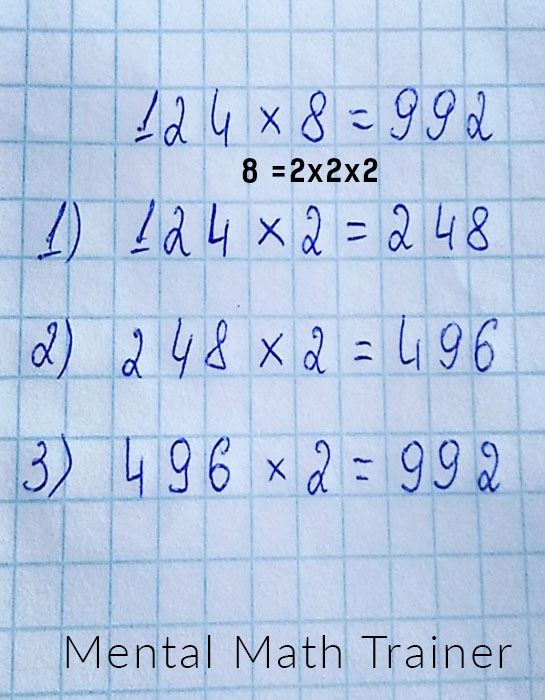 124 × 8 = 992
8 =2x2x2
1) 124 × 2 = 248
2) 248 × 2 = 496
3) 496 × 2 = 992
Mental Math Trainer